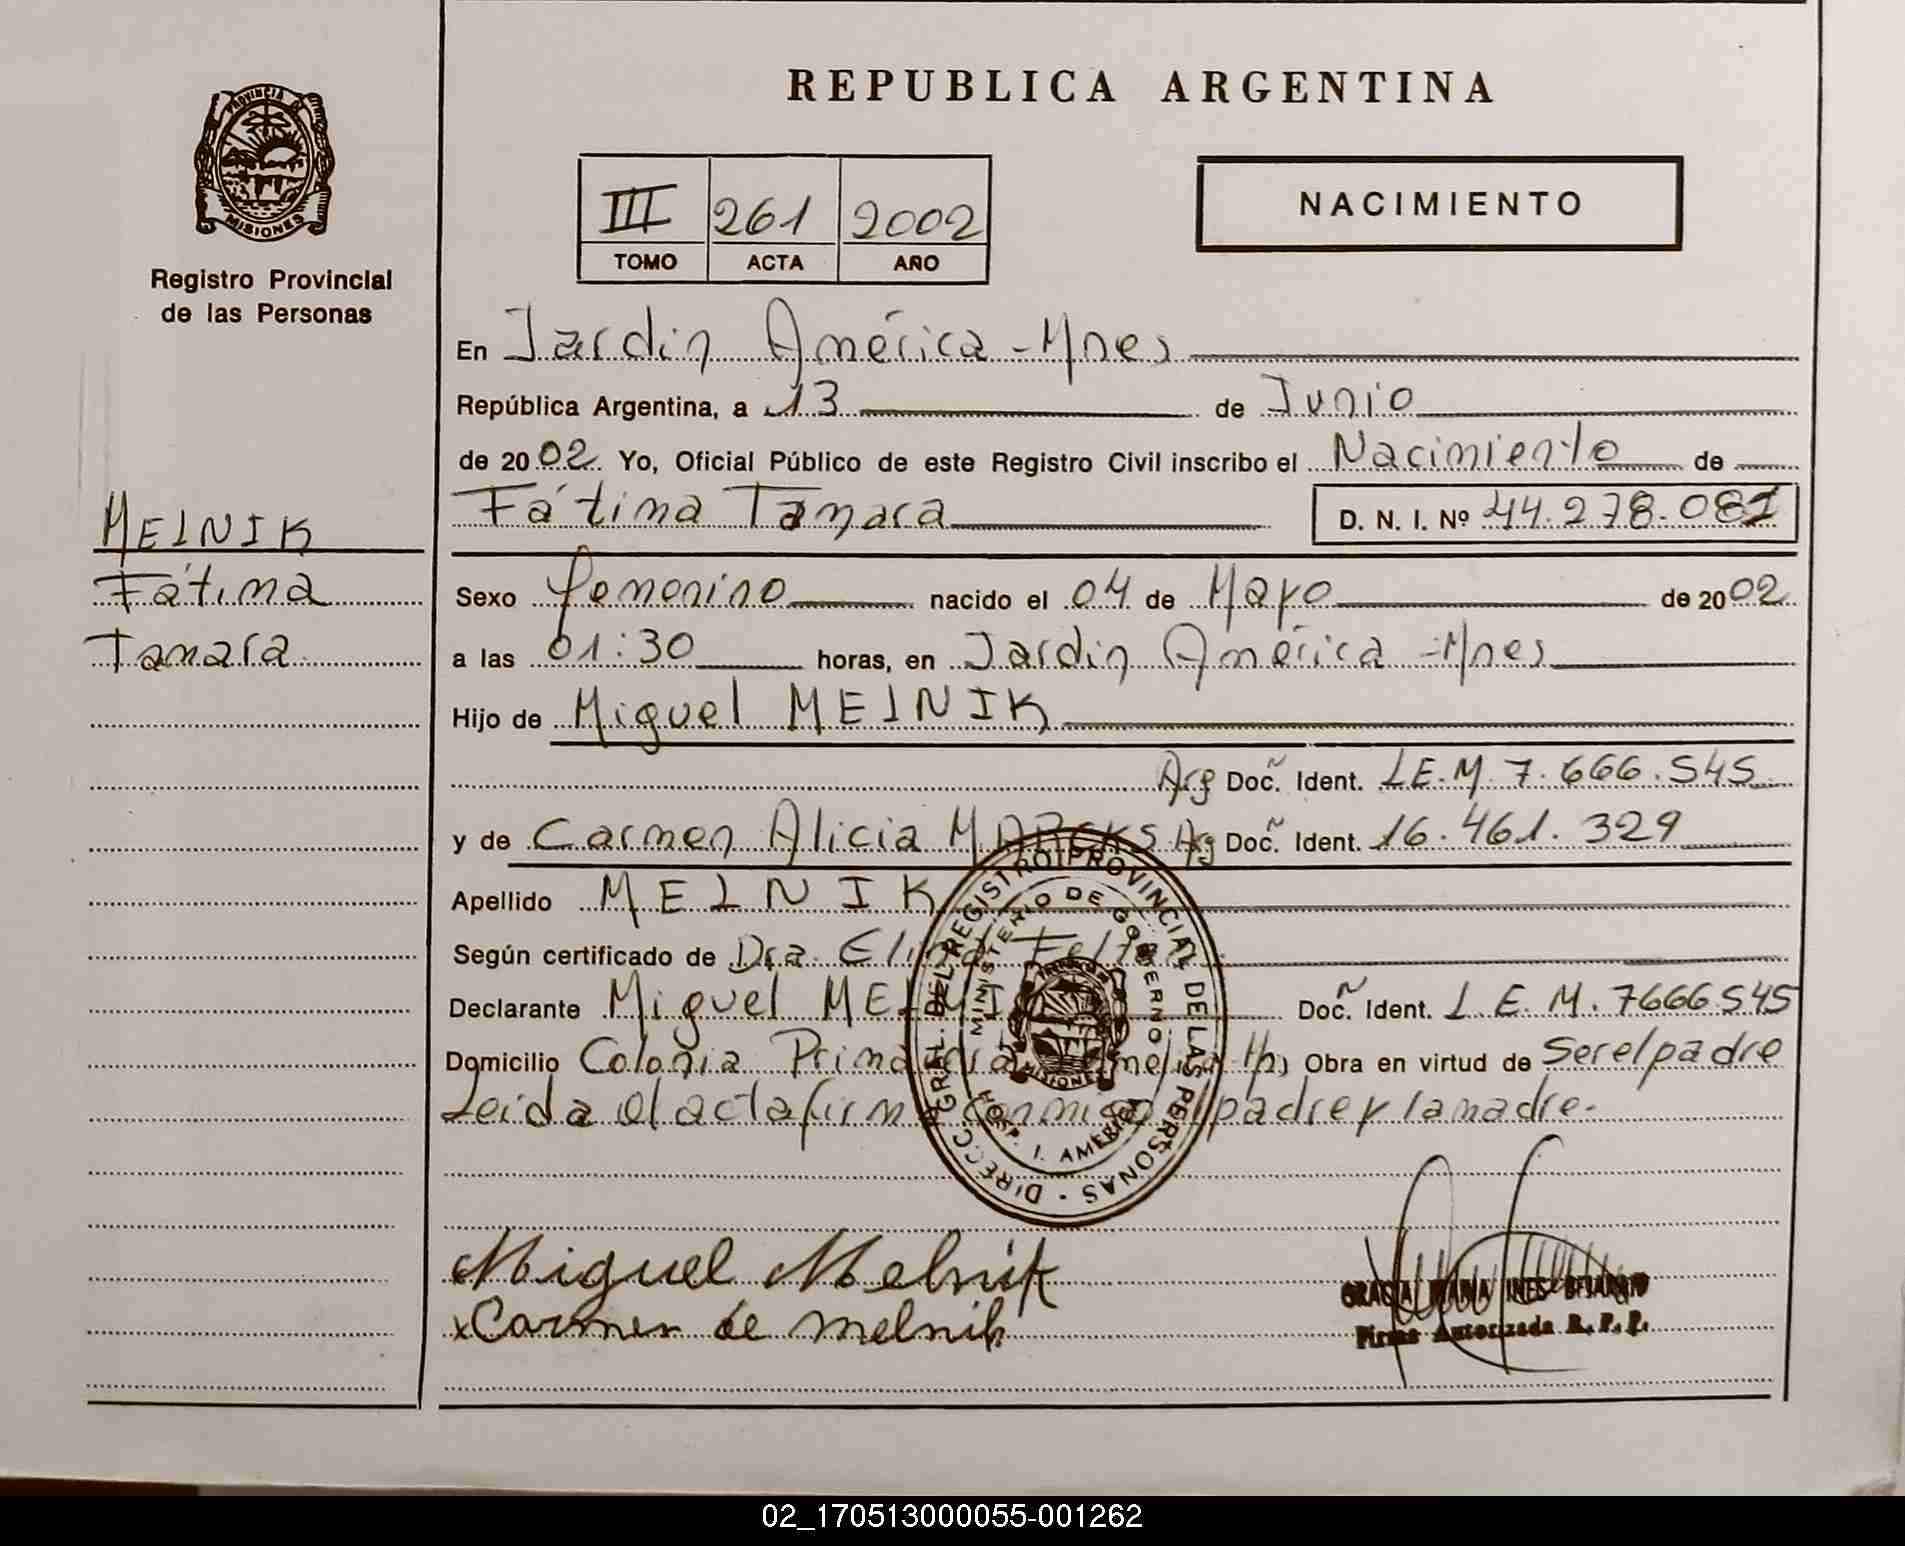 REPUBLICA ARGENTINA
PROVINCIA DE
MISIONES
Registro Provincial
de las Personas
III 261 2002
TOMO ACTA AÑO
NACIMIENTO
En Jardin América - Mnes
República Argentina, a 13 de Junio
de 2002 Yo, Oficial Público de este Registro Civil inscribo el Nacimiento de
Fátima Tamara D. N. I. Nº 44.278.081
MELNIK
Fátima
Tamara
Sexo femenino nacido el 04 de Mayo de 2002
a las 01:30 horas, en Jardin América - Mnes
Hijo de Miguel MELNIK
Arg Doc. Ident. L.E.M. 7.666.545
y de Carmen Alicia MARCKS Arg Doc. Ident. 16.461.329
Apellido MELNIK
Según certificado de Dra.
Declarante Miguel MELNIK Doc. Ident. L.E.M. 7666545
Domicilio Colonia Obra en virtud de Ser el padre
Leida el acta firma conmigo padre y la madre.-
DIRECC. GRAL. DEL REGISTRO PROVINCIAL DE LAS PERSONAS
MINISTERIO DE GOBIERNO
MISIONES
HOSP. J. AMERICA
Miguel Melnik
x Carmen de Melnik
GRACIA MARIA INES
Firma Autorizada R. P. P.
02_170513000055-001262